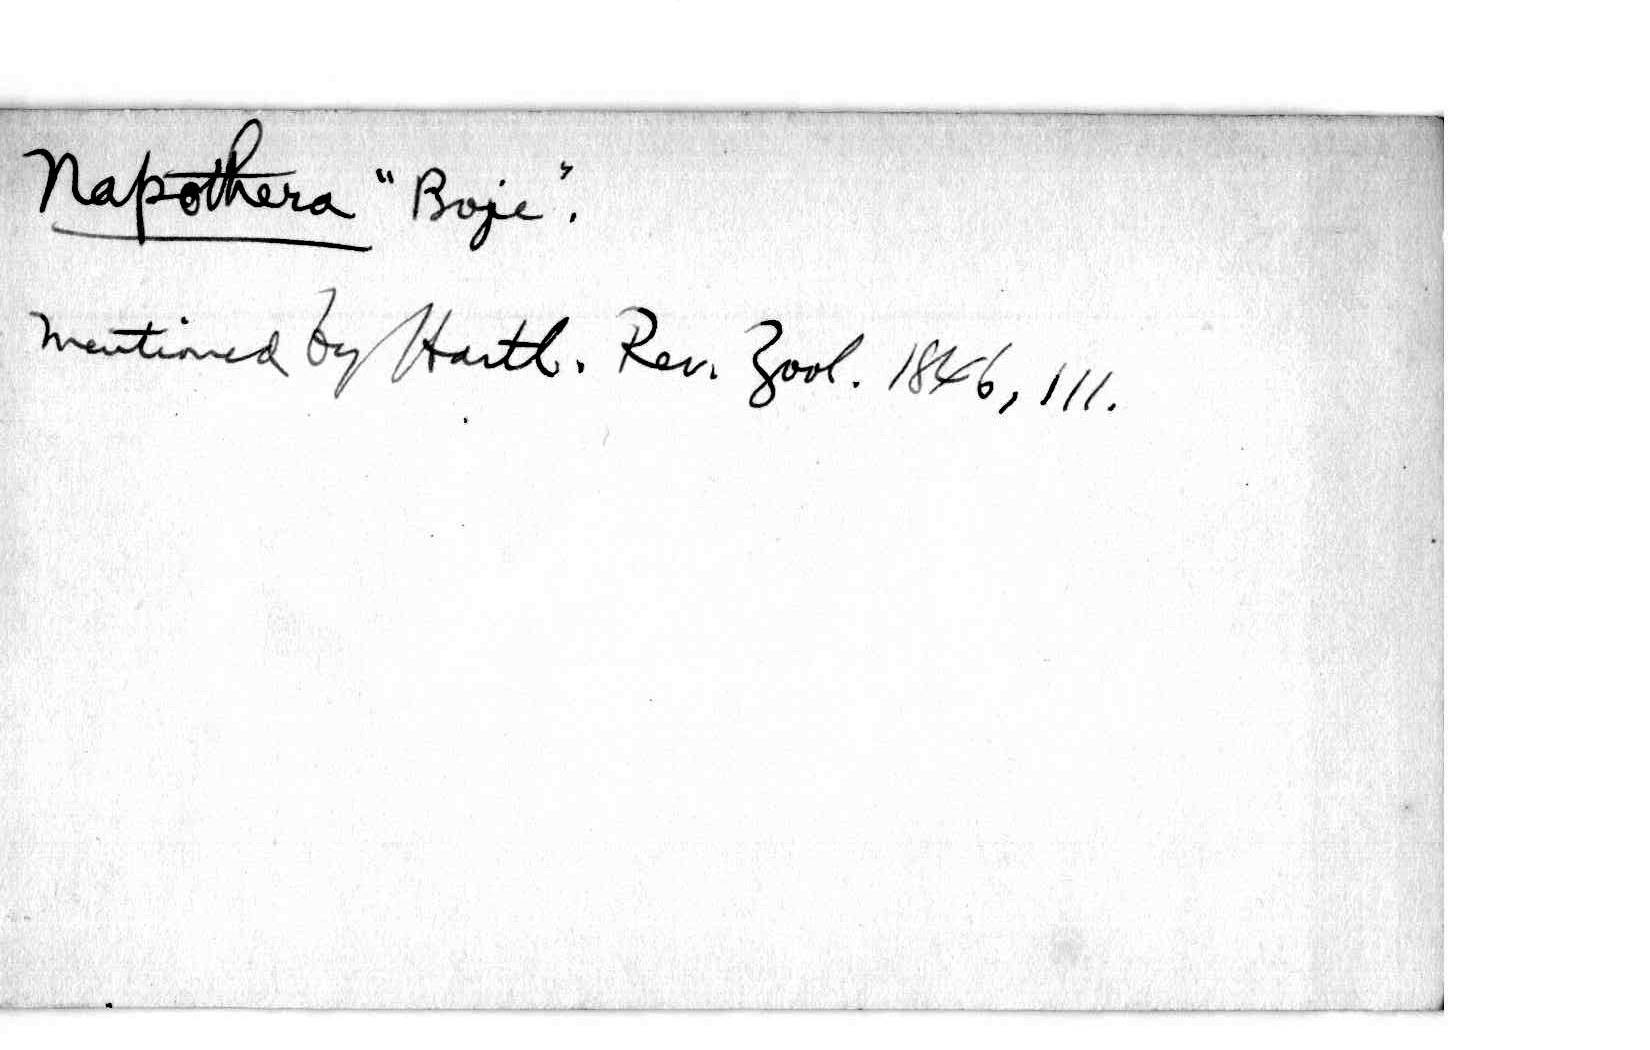 Napothera "Boje".
Mentioned by Hartl. Rev. Zool. 1846, 111.